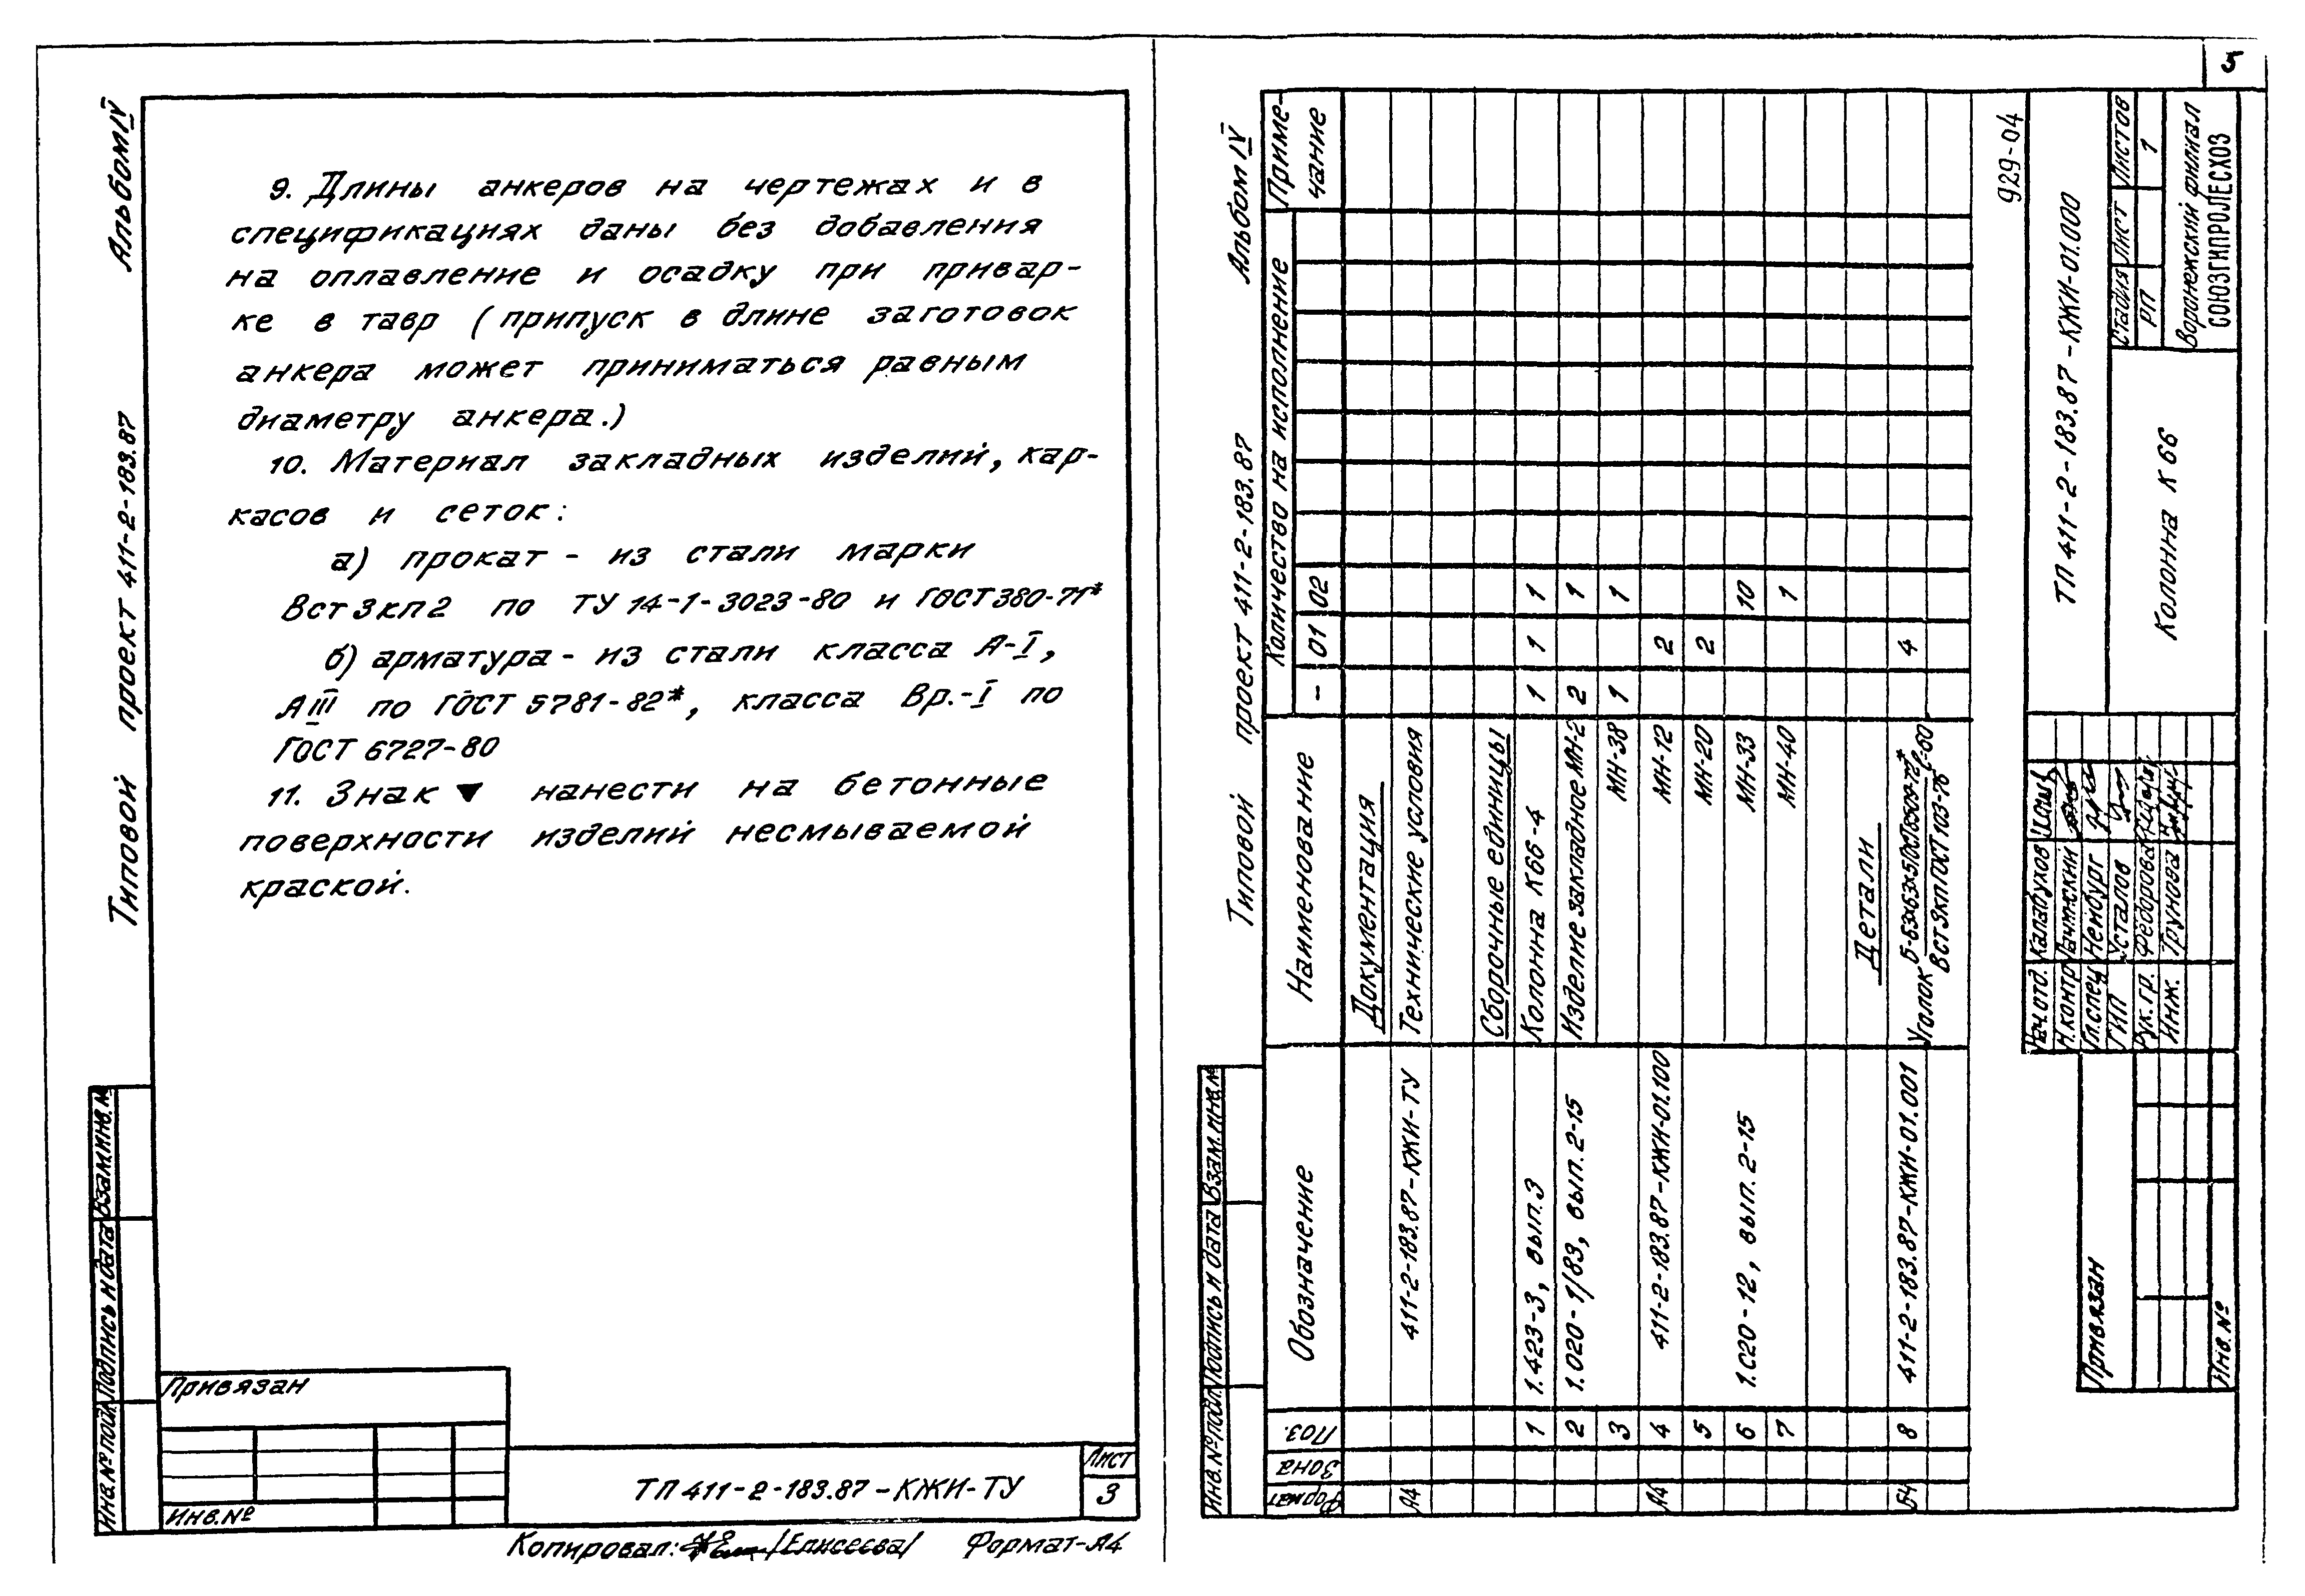 5
Альбом IV
Типовой проект 411-2-183.87
9. Длины анкеров на чертежах и в
спецификациях даны без добавления
на оплавление и осадку при привар-
ке в тавр (припуск в длине заготовок
анкера может приниматься равным
диаметру анкера.)
10. Материал закладных изделий, кар-
касов и сеток:
а) прокат - из стали марки
Вст3кп2 по ТУ 14-1-3023-80 и ГОСТ 380-71*
б) арматура - из стали класса А-I,
АIII по ГОСТ 5781-82*, класса Вр.-I по
ГОСТ 6727-80
11. Знак ▼ нанести на бетонные
поверхности изделий несмываемой
краской.
Инв.№подл. Подпись и дата Взам.инв.№
Привязан
Инв.№
ТП 411-2-183.87-КЖИ-ТУ
Лист
3
Копировал: /Елисеева/ Формат-А4
Типовой проект 411-2-183.87 Альбом IV
Формат Зона Поз. Обозначение Наименование Количество на исполнение Приме-
чание
- 01 02
Документация
А4 411-2-183.87-КЖИ-ТУ Технические условия
Сборочные единицы
1 1.423-3, вып.3 Колонна К66-4 1 1 1
2 1.020-1/83, вып.2-15 Изделие закладное МН-2 2 1
3 МН-38 1 1
А4 4 411-2-183.87-КЖИ-01.100 МН-12 2
5 МН-20 2
6 1.С20-12, вып.2-15 МН-33 10
7 МН-40 1
Детали
Б4 8 411-2-183.87-КЖИ-01.001 Уголок Б-63х63х5 ГОСТ 8509-72* ℓ-60 4
Вст3кп ГОСТ 103-76
929-04
Инв.№подл. Подпись и дата Взам.инв.№
Нач.отд. Калабухов
Н.контр
Гл.спец Нейбург
ГИП Усталов
Рук.гр. Федорова
Инж. Трунова
ТП 411-2-183.87-КЖИ-01.000
Колонна К66
Стадия Лист Листов
РП 1
Воронежский филиал
СОЮЗГИПРОЛЕСХОЗ
Привязан
Инв.№